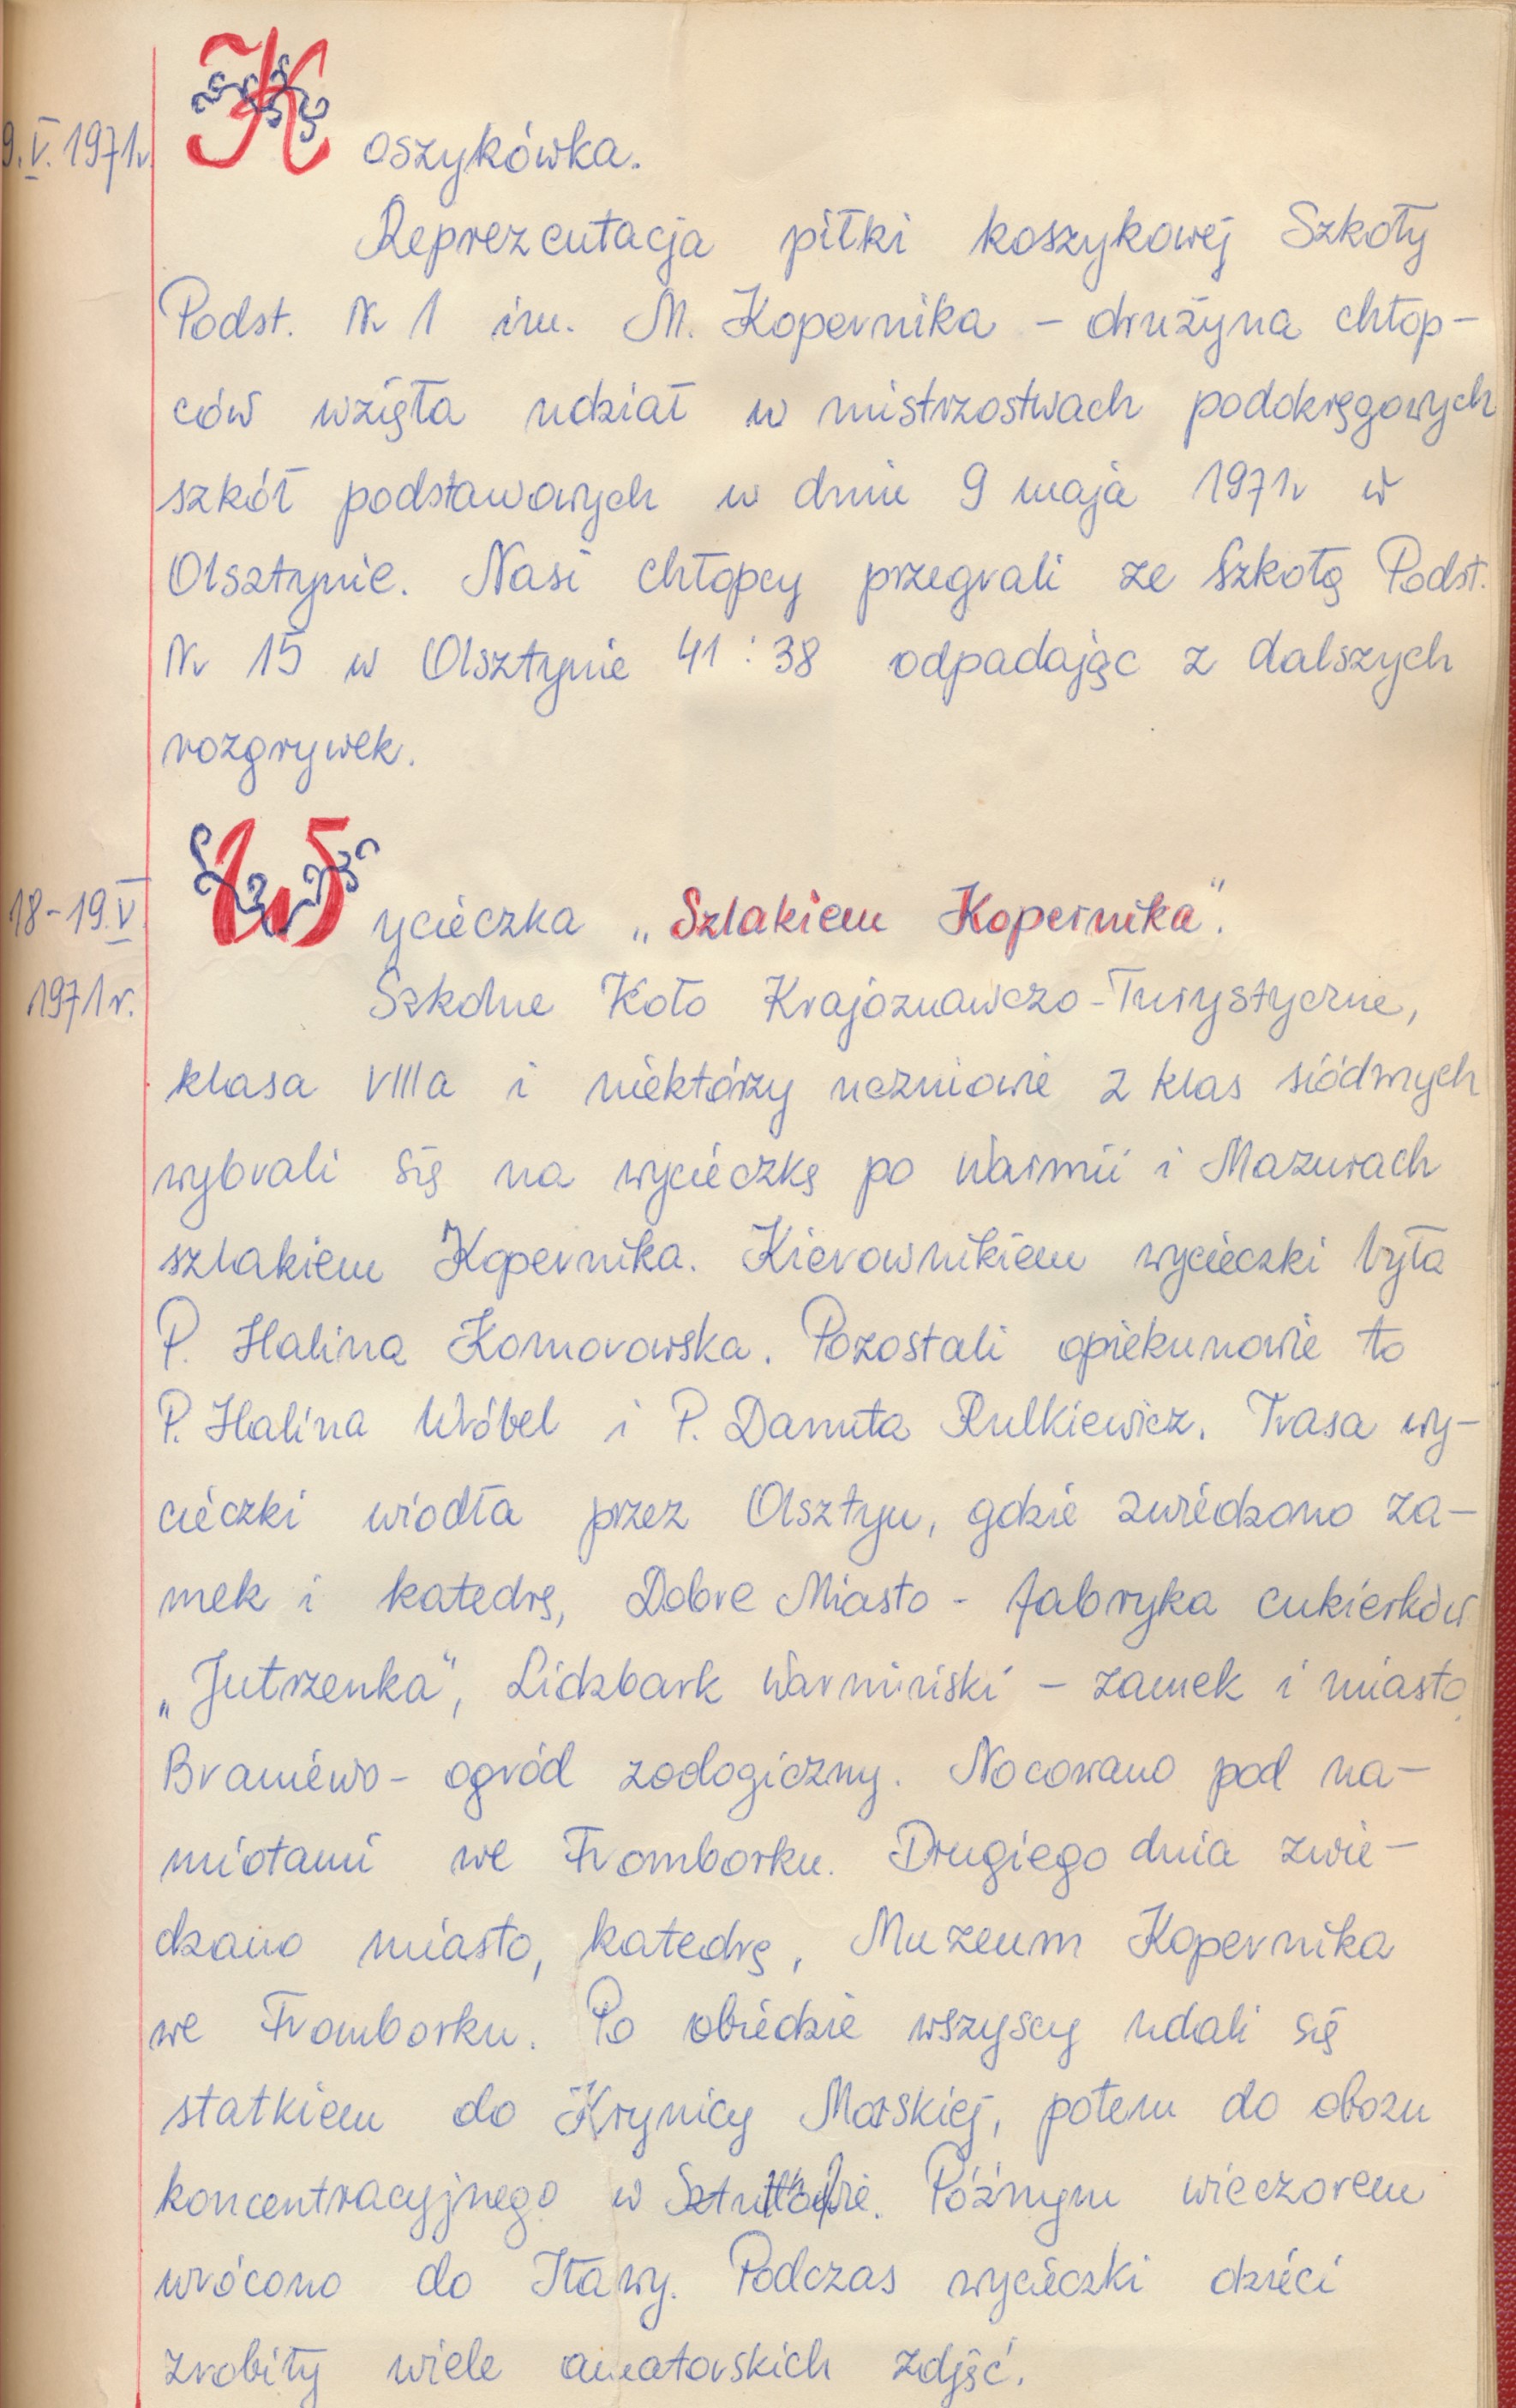 9.V.1971r. Koszykówka.
Reprezentacja piłki koszykowej Szkoły
Podst. Nr 1 im. M. Kopernika – drużyna chłop-
ców wzięła udział w mistrzostwach podokręgowych
szkół podstawowych w dniu 9 maja 1971r w
Olsztynie. Nasi chłopcy przegrali ze Szkołą Podst.
Nr 15 w Olsztynie 41 : 38 odpadając z dalszych
rozgrywek.
18-19.V 1971r.
Wycieczka „Szlakiem Kopernika".
Szkolne Koło Krajoznawczo-Turystyczne,
klasa VIIIa i niektórzy uczniowie z klas siódmych
wybrali się na wycieczkę po Warmii i Mazurach
szlakiem Kopernika. Kierownikiem wycieczki była
P. Halina Komorowska. Pozostali opiekunowie to
P. Halina Wróbel i P. Danuta Rulkiewicz. Trasa wy-
cieczki wiodła przez Olsztyn, gdzie zwiedzono za-
mek i katedrę, Dobre Miasto - fabryka cukierków
„Jutrzenka", Lidzbark Warmiński – zamek i miasto,
Braniewo - ogród zoologiczny. Nocowano pod na-
miotami we Fromborku. Drugiego dnia zwie-
dzano miasto, katedrę, Muzeum Kopernika
we Fromborku. Po obiedzie wszyscy udali się
statkiem do Krynicy Morskiej, potem do obozu
koncentracyjnego w Późnym wieczorem
wrócono do Iławy. Podczas wycieczki dzieci
zrobiły wiele amatorskich zdjęć.